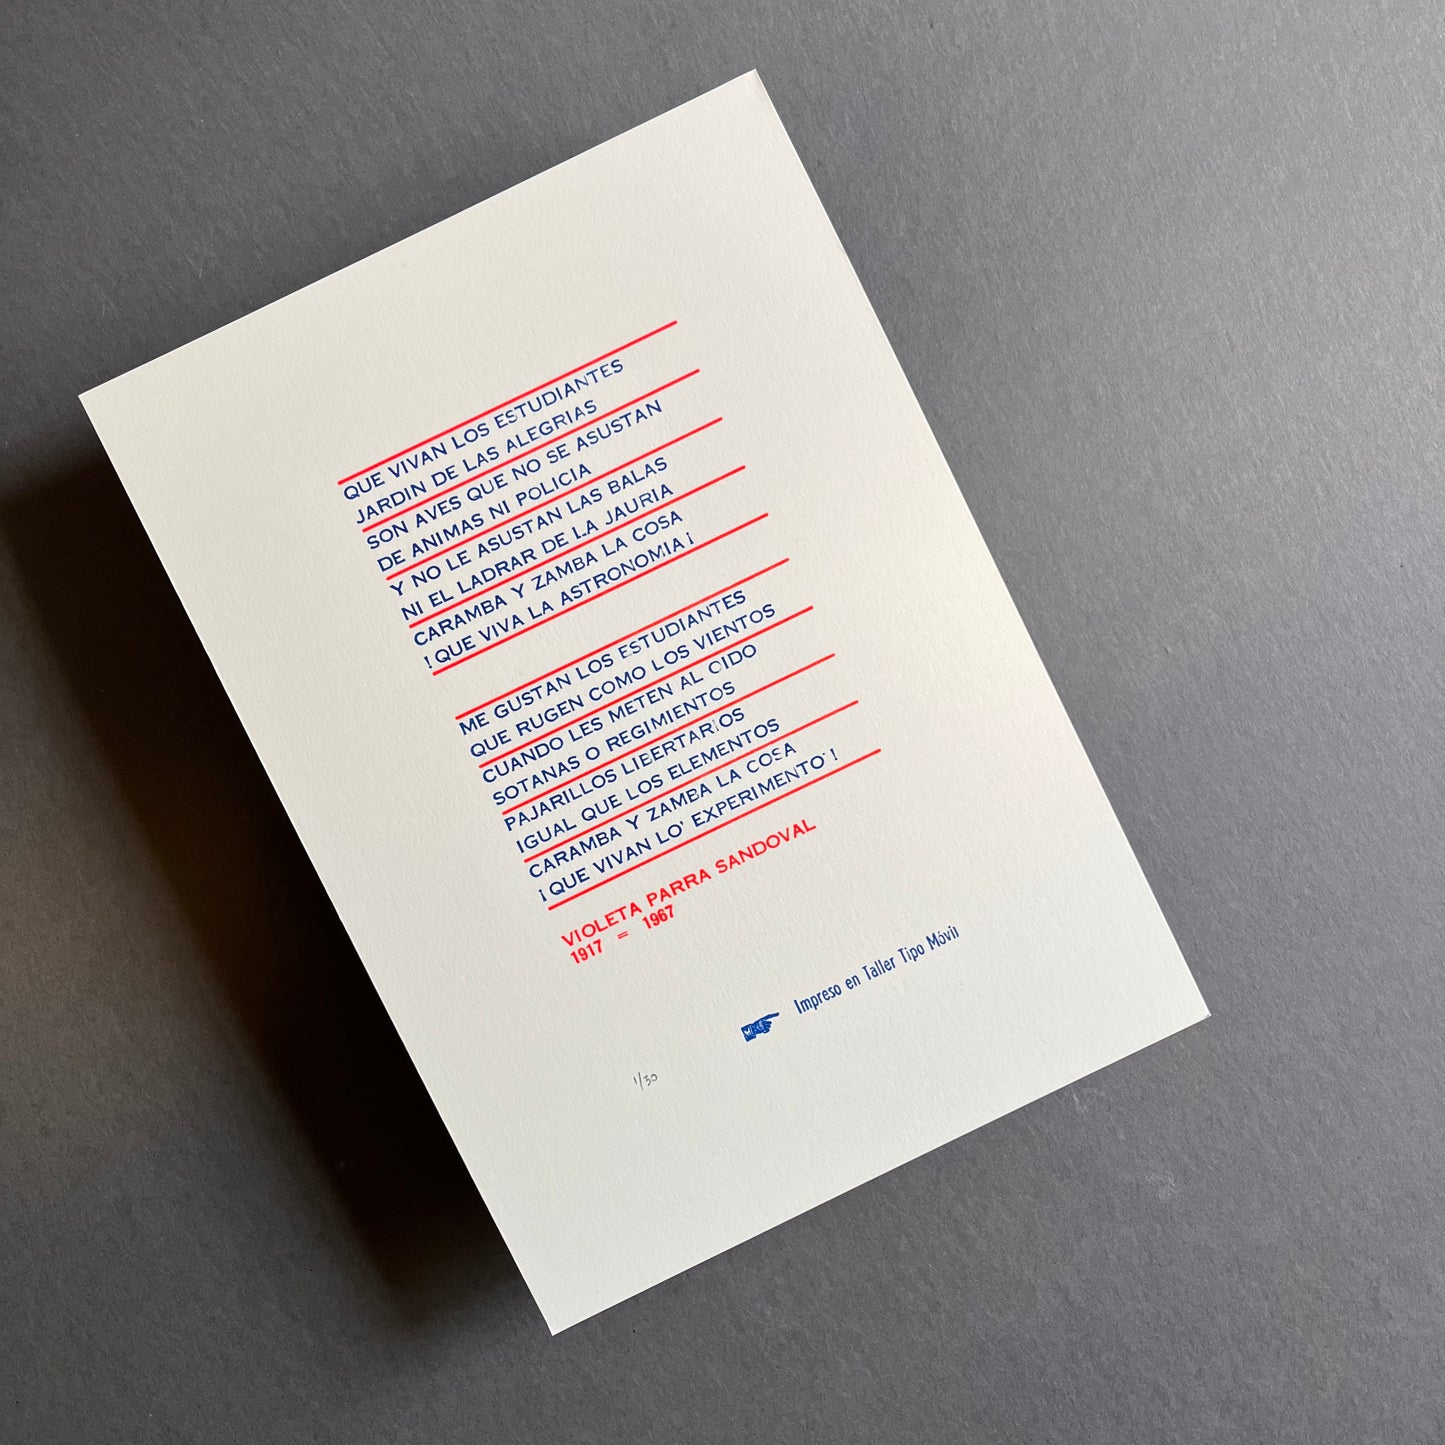 QUE VIVAN LOS ESTUDIANTES
JARDIN DE LAS ALEGRIAS
SON AVES QUE NO SE ASUSTAN
DE ANIMAS NI POLICIA
Y NO LE ASUSTAN LAS BALAS
NI EL LADRAR DE LA JAURIA
CARAMBA Y ZAMBA LA COSA
!QUE VIVA LA ASTRONOMIA¡
ME GUSTAN LOS ESTUDIANTES
QUE RUGEN COMO LOS VIENTOS
CUANDO LES METEN AL OIDO
SOTANAS O REGIMIENTOS
PAJARILLOS LIBERTARIOS
IGUAL QUE LOS ELEMENTOS
CARAMBA Y ZAMBA LA COSA
¡QUE VIVAN LO' EXPERIMENTO'!
VIOLETA PARRA SANDOVAL
1917 = 1967
Impreso en Taller Tipo Móvil
1/30